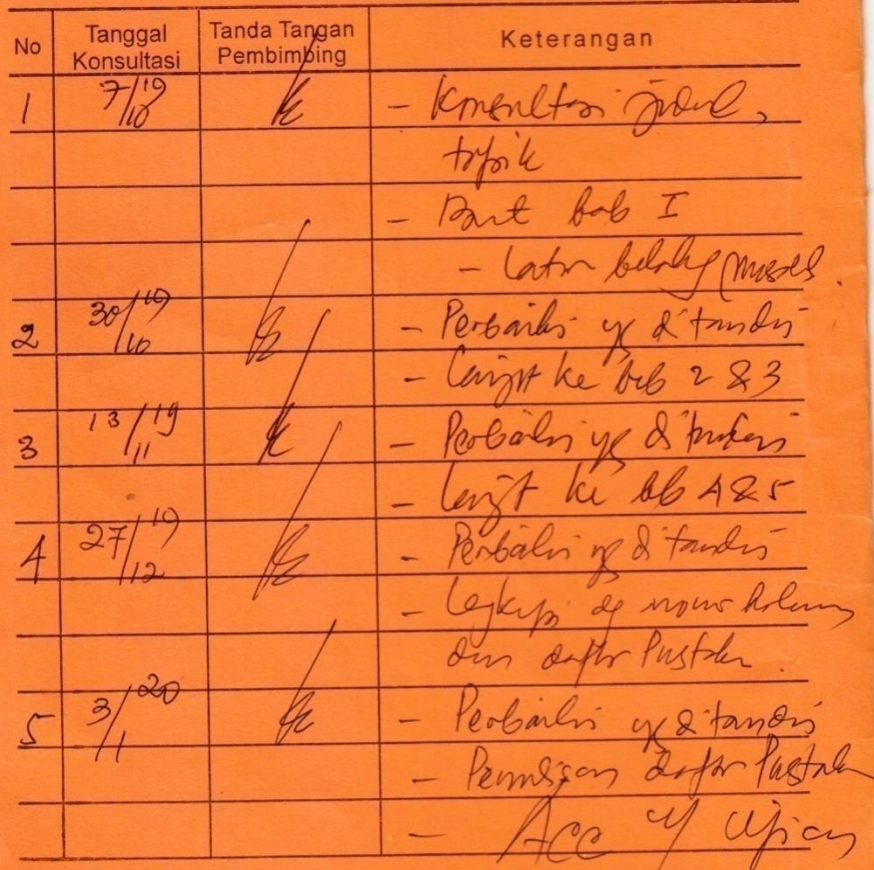 No Tanggal Konsultasi Tanda Tangan Pembimbing Keterangan
1 7/10 19 - Konsultasi judul,
topik
- Buat bab I
- Latar belakang masalah
2 30/10 19 - Perbaiki yg ditandai
- Lanjut ke bab 2 & 3
3 13/11 19 - Perbaiki yg ditandai
- Lanjut ke bab 4 & 5
4 27/12 19 - Perbaiki yg ditandai
- Lengkapi dg nomor halaman
dan daftar Pustaka
5 3/1 20 - Perbaiki yg ditandai
- Penulisan daftar Pustaka
- Acc u/ Ujian